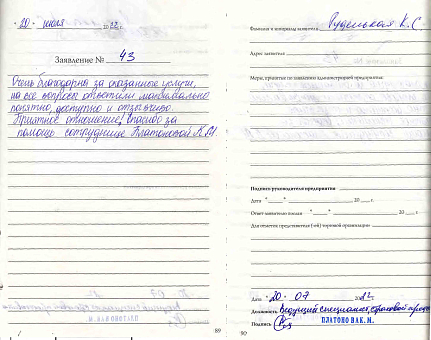 " 20 " июля 20 12 г.
Заявление № 43
Очень благодарна за оказанные услуги,
на все вопросы ответили максимально
понятно, доступно и отзывчиво.
Приятное отношение! Спасибо за
помощь сотруднице Платоновой К.М.
89
Фамилия и инициалы заявителя К.С.
Адрес заявителя
Меры, принятые по заявлению администрацией предприятия:
Подпись руководителя предприятия
Дата " " 20 г.
Ответ заявителю послан " " 20 г.
Для отметок представителя (-ей) торговой организации
Дата " 20 " 07 20 12 г.
Должность Ведущий специалист
Подпись ПЛАТОНОВА К. М.
90